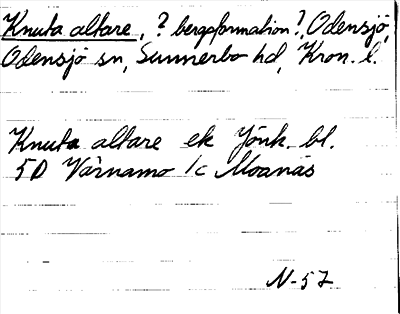 Knuta altare, ? bergsformation?, Odensjö,
Odensjö sn, Sunnerbo hd, Kron. l.
Knuta altare ek Jönk. bl.
5D Värnamo 1c Moanäs
N-57